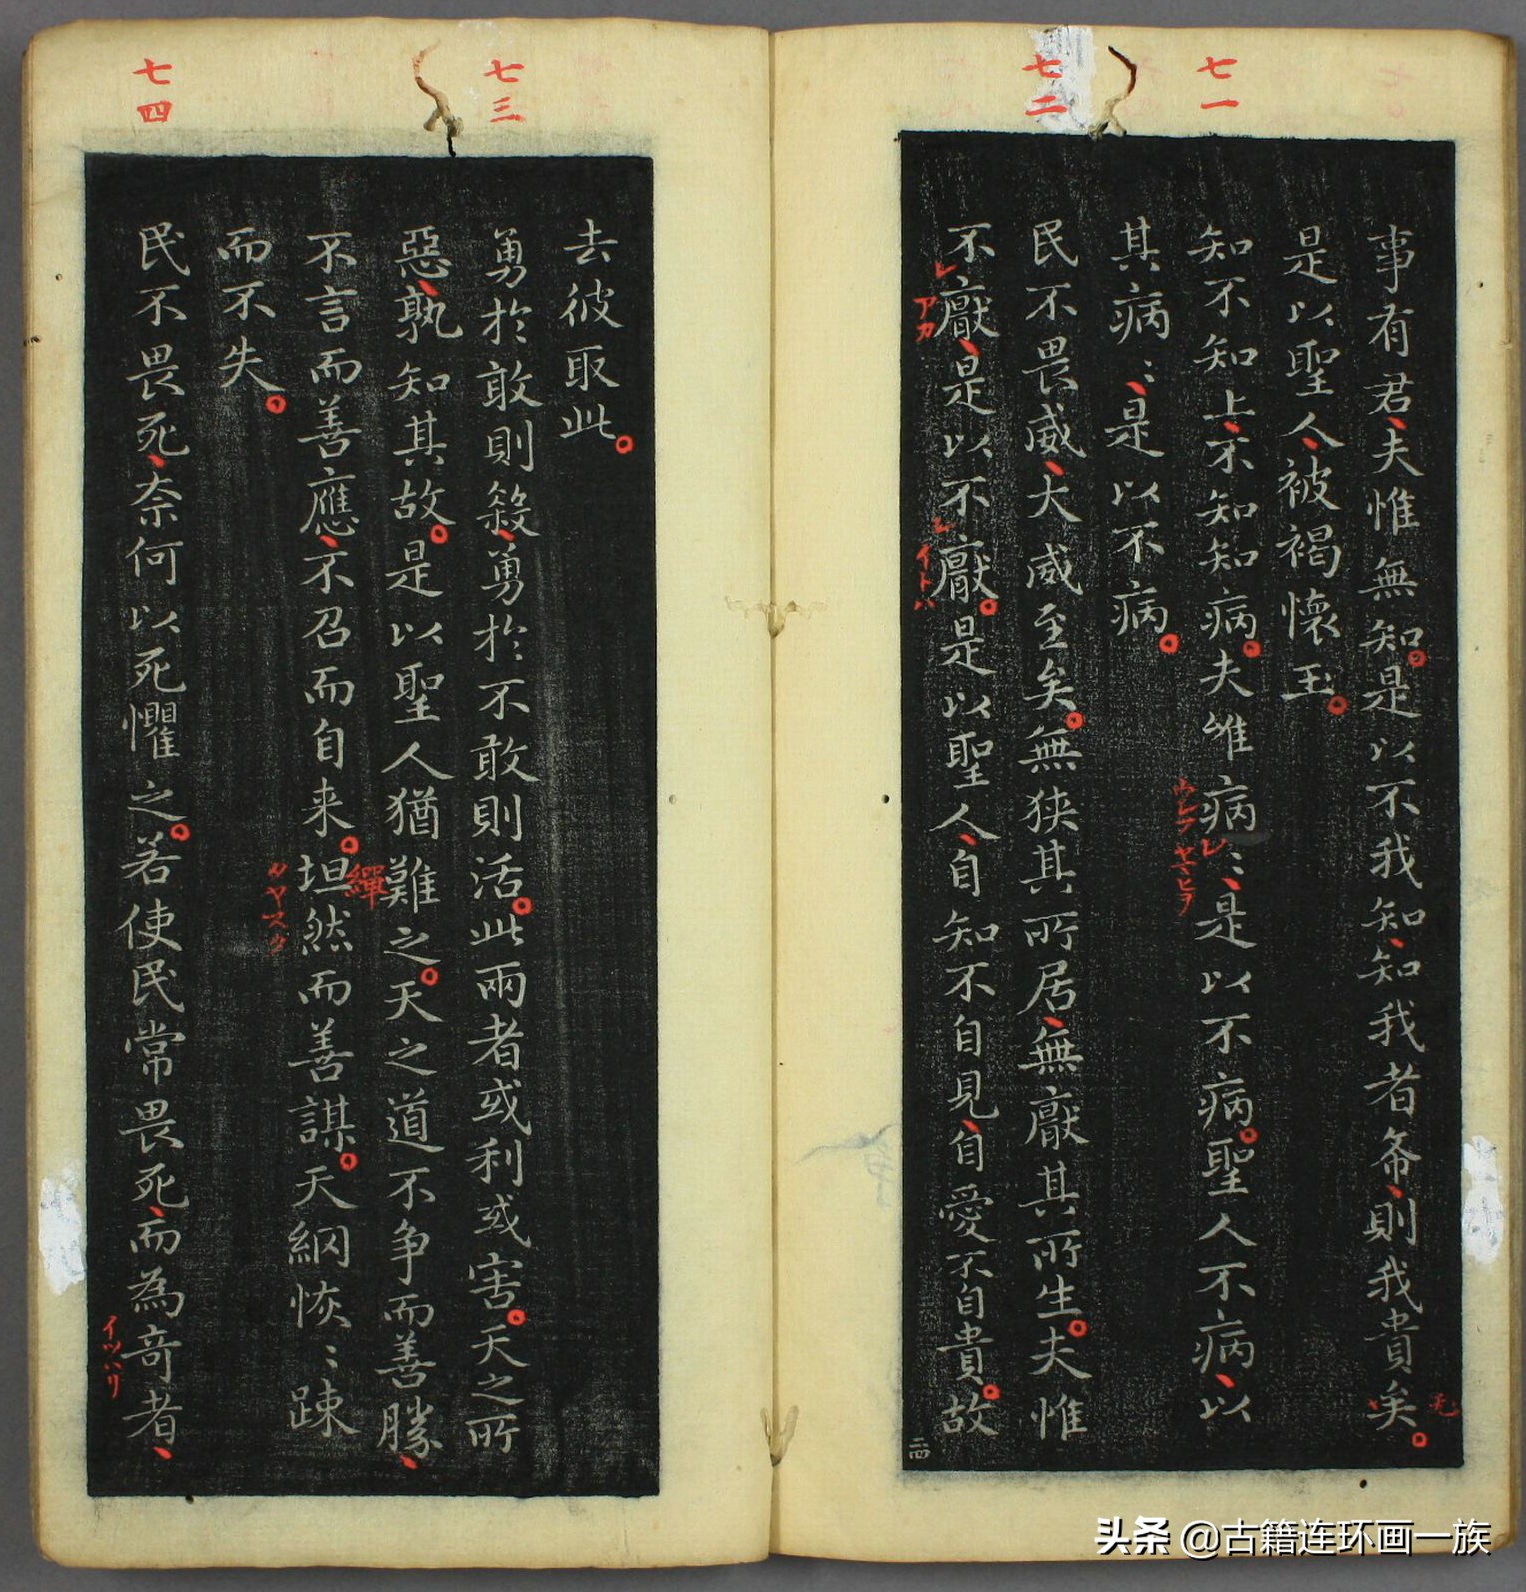 七一
七二
事有君夫惟無知是以不我知知我者希則我貴矣
是以聖人被褐懷玉
知不知上不知知病夫唯病〻是以不病聖人不病以
其病〻是以不病
民不畏威大威至矣無狭其所居無厭其所生夫惟
不厭是以不厭是以聖人自知不自見自愛不自貴故
レ
アカ
レ
イトハ
二四
七三
七四
去彼取此
勇於敢則殺勇於不敢則活此兩者或利或害天之所
惡孰知其故是以聖人猶難之天之道不争而善勝
不言而善應不召而自来坦然而善謀天網恢〻踈
繟
而不失
民不畏死奈何以死懼之若使民常畏死而為奇者
イツハリ
头条 @古籍连环画一族